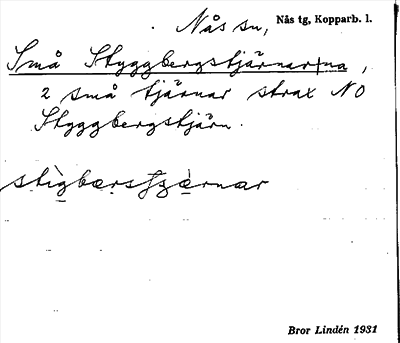 Nås sn, Nås tg, Kopparb. l.
Små Styggbergstjärnarna,
2 små tjärnar strax NO
Styggbergstjärn.
Bror Lindén 1931